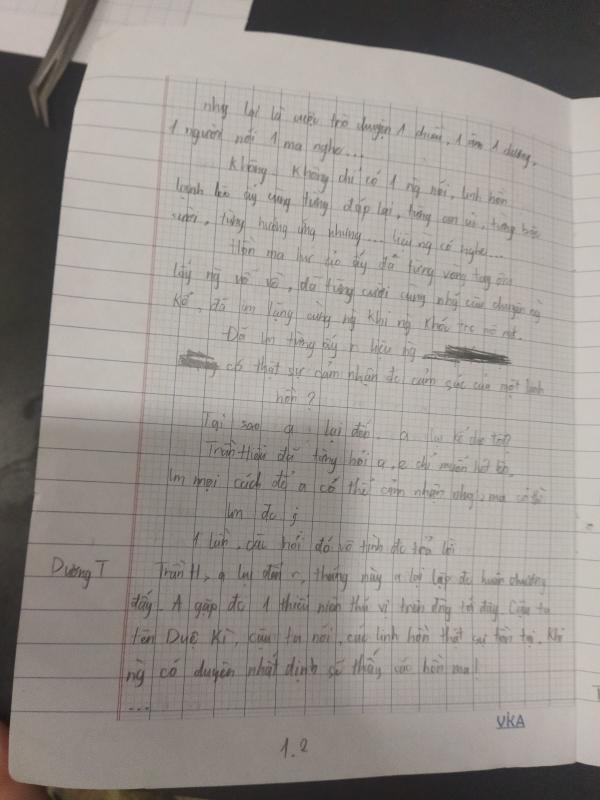 như lại là cuộc trò chuyện 1 chiều. 1 âm 1 dương,
1 người nói 1 ma nghe...
Không. Không chỉ có 1 ng nói, linh hồn
lạnh lẽo ấy cũng từng đáp lại, từng an ủi, từng
cười, từng hưởng ứng nhưng... liệu ng có nghe...
Hồn ma ấy đã từng vòng tay ôm
lấy ng vỗ về, đã từng cười cùng những câu chuyện ng
kể, đã im lặng cùng ng khi ng khóc
Đã lm từng ấy r liệu ng
có thật sự cảm nhận đc cảm xúc của một linh
hồn?
Tại sao a lại đến. a
Trần Hiểu đã từng hỏi a, e chỉ muốn
lm mọi cách để a có thể cảm nhận ma có
lm đc j
1 lần, câu hỏi đó vô tình đc trả lời
Dương T Trần H, a lại đến r, tháng này a lại lập đc huân chương
đấy. A gặp đc 1 thiếu niên thú vị trên đg tới đây. Cậu ta
tên Duê Kì, cậu ta nói, các linh hồn thật sự tồn tại. Khi
ng có duyên nhất định sẽ thấy các hồn ma!
...
VKA
1.2